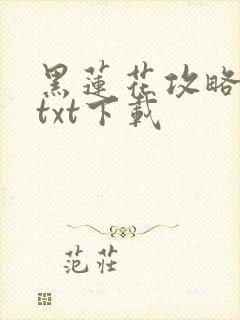 黑蓮花攻略
txt下載
范莊